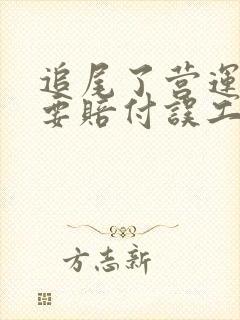 追尾了营运
要赔付误工
方志新